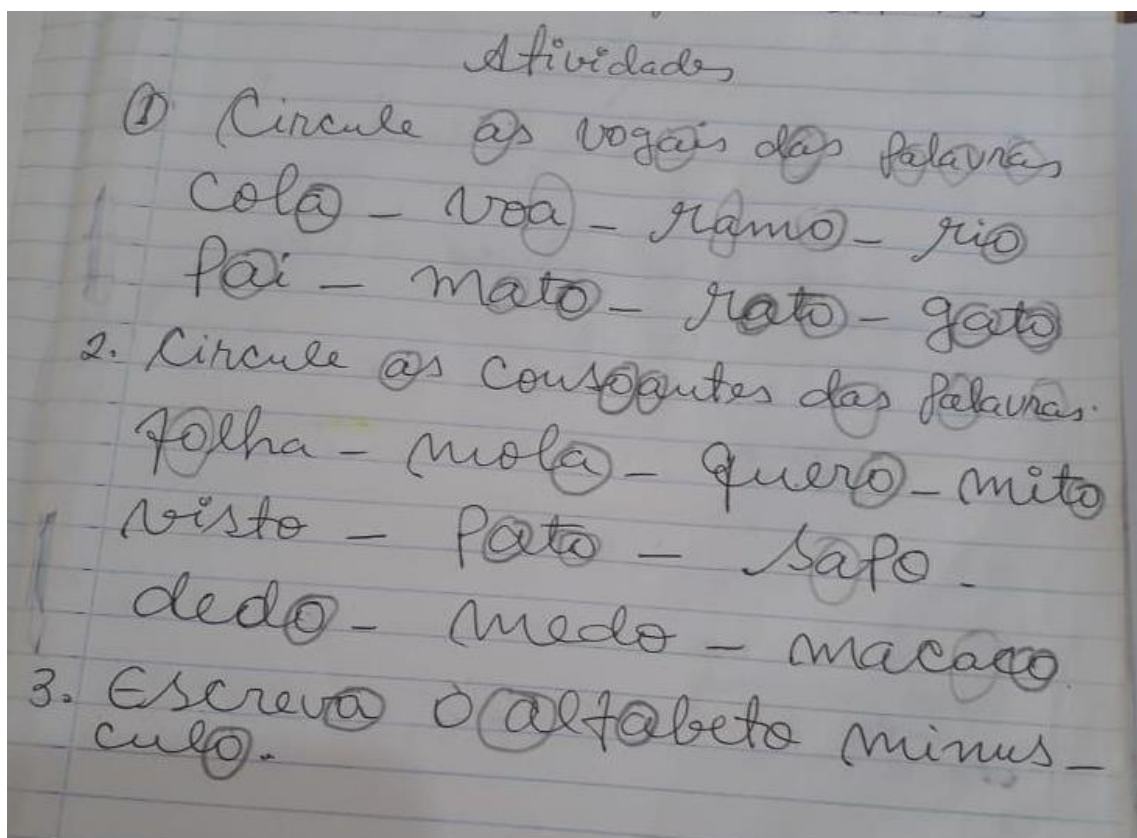 Atividades
① Circule as vogais das palavras
cola - voa - ramo - rio
Pai - mato - rato - gato
2. Circule as consoantes das palavras.
folha - mola - quero - mito
visto - Pato - sapo -
dedo - medo - macaco.
3. Escreva o alfabeto minus-
culo.